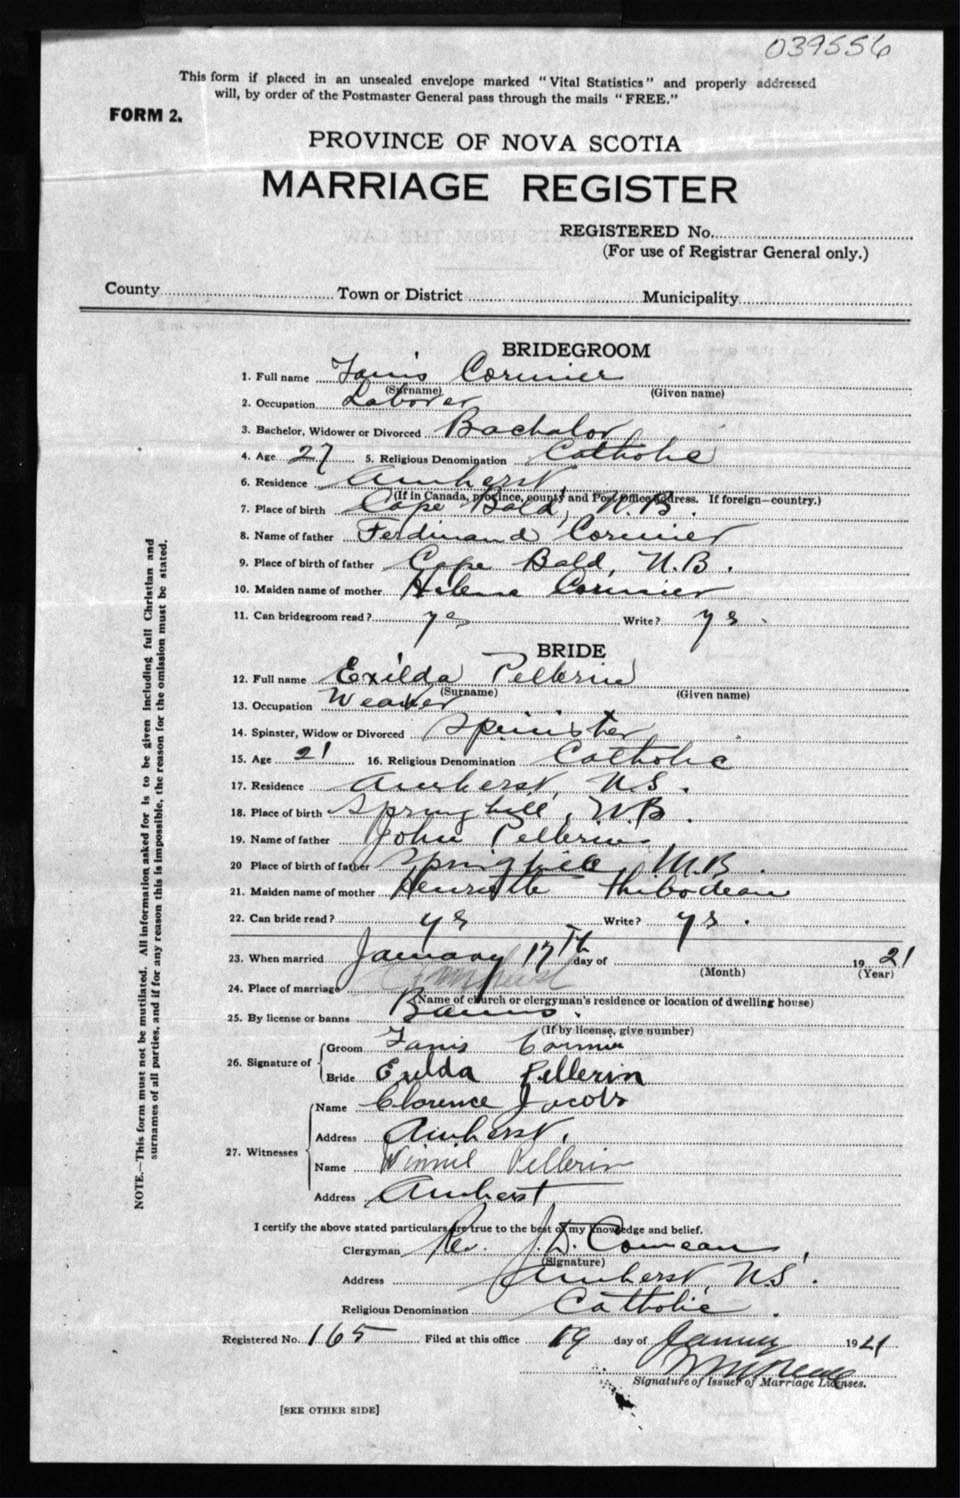 039556
This form if placed in an unsealed envelope marked "Vital Statistics" and properly addressed
will, by order of the Postmaster General pass through the mails "FREE."
FORM 2.
PROVINCE OF NOVA SCOTIA
MARRIAGE REGISTER
REGISTERED No.
(For use of Registrar General only.)
County Town or District Municipality
BRIDEGROOM
1. Full name Tanis Cormier
(Surname) (Given name)
2. Occupation Laborer
3. Bachelor, Widower or Divorced Bachalor
4. Age 27 5. Religious Denomination Catholic
6. Residence Amherst,
(If in Canada, province, county and Post Office Address. If foreign—country.)
7. Place of birth Cape Bald, N.B.
8. Name of father Ferdinand Cormier
9. Place of birth of father Cape Bald, N.B.
10. Maiden name of mother Helene Cormier
11. Can bridegroom read? yes Write? yes.
BRIDE
12. Full name Exilda Pellerin
(Surname) (Given name)
13. Occupation Weaver
14. Spinster, Widow or Divorced Spinister
15. Age 21 16. Religious Denomination Catholic
17. Residence Amherst, N.S.
18. Place of birth Springhill, N.B.
19. Name of father John Pellerin
20 Place of birth of father Springhill N.B.
21. Maiden name of mother Henriette Thibodeau
22. Can bride read? yes Write? yes.
23. When married January 17th day of 1921
(Month) (Year)
24. Place of marriage
(Name of church or clergyman's residence or location of dwelling house)
25. By license or banns Banns.
(If by license, give number)
26. Signature of Groom Tanis Cormier
Bride Exilda Pellerin
27. Witnesses Name Clarence Jacobs
Address Amherst,
Name Winnie Pellerin
Address Amherst
I certify the above stated particulars are true to the best of my knowledge and belief.
Clergyman Rev. J. D. Comeau,
(Signature)
Address Amherst, N.S.
Religious Denomination Catholic.
Registered No. 165 Filed at this office 19 day of January 1921
Signature of Issuer of Marriage Licenses.
[SEE OTHER SIDE]
NOTE.—This form must not be mutilated. All information asked for is to be given including full Christian and
surnames of all parties, and if for any reason this is impossible, the reason for the omission must be stated.